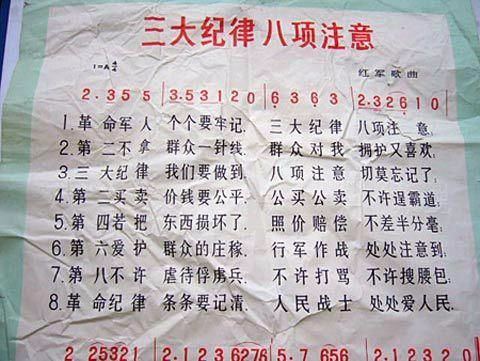 三大纪律八项注意
1=A 4/4 红军歌曲
2·3 5 5 | 3·5 3 1 2 0 | 6 3 6 3 | 2·3 2 6 1 0 |
1.革命军人 个个要牢记, 三大纪律 八项注意:
2.第二不拿 群众一针线. 群众对我 拥护又喜欢;
3.三大纪律 我们要做到. 八项注意 切莫忘记了;
4.第二买卖 价钱要公平. 公买公卖 不许逞霸道;
5.第四若把 东西损坏了. 照价赔偿 不差半分毫;
6.第六爱护 群众的庄稼. 行军作战 处处注意到;
7.第八不许 虐待俘虏兵. 不许打骂 不许搜腰包;
8.革命纪律 条条要记清. 人民战士 处处爱人民.
2 25321 | 2·123 6276 | 5·7 656 | 2·12320